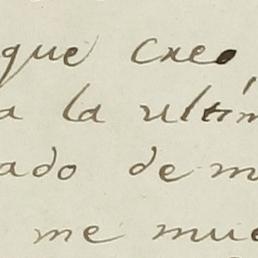 que creo
a la ultím
ado de m
me mue